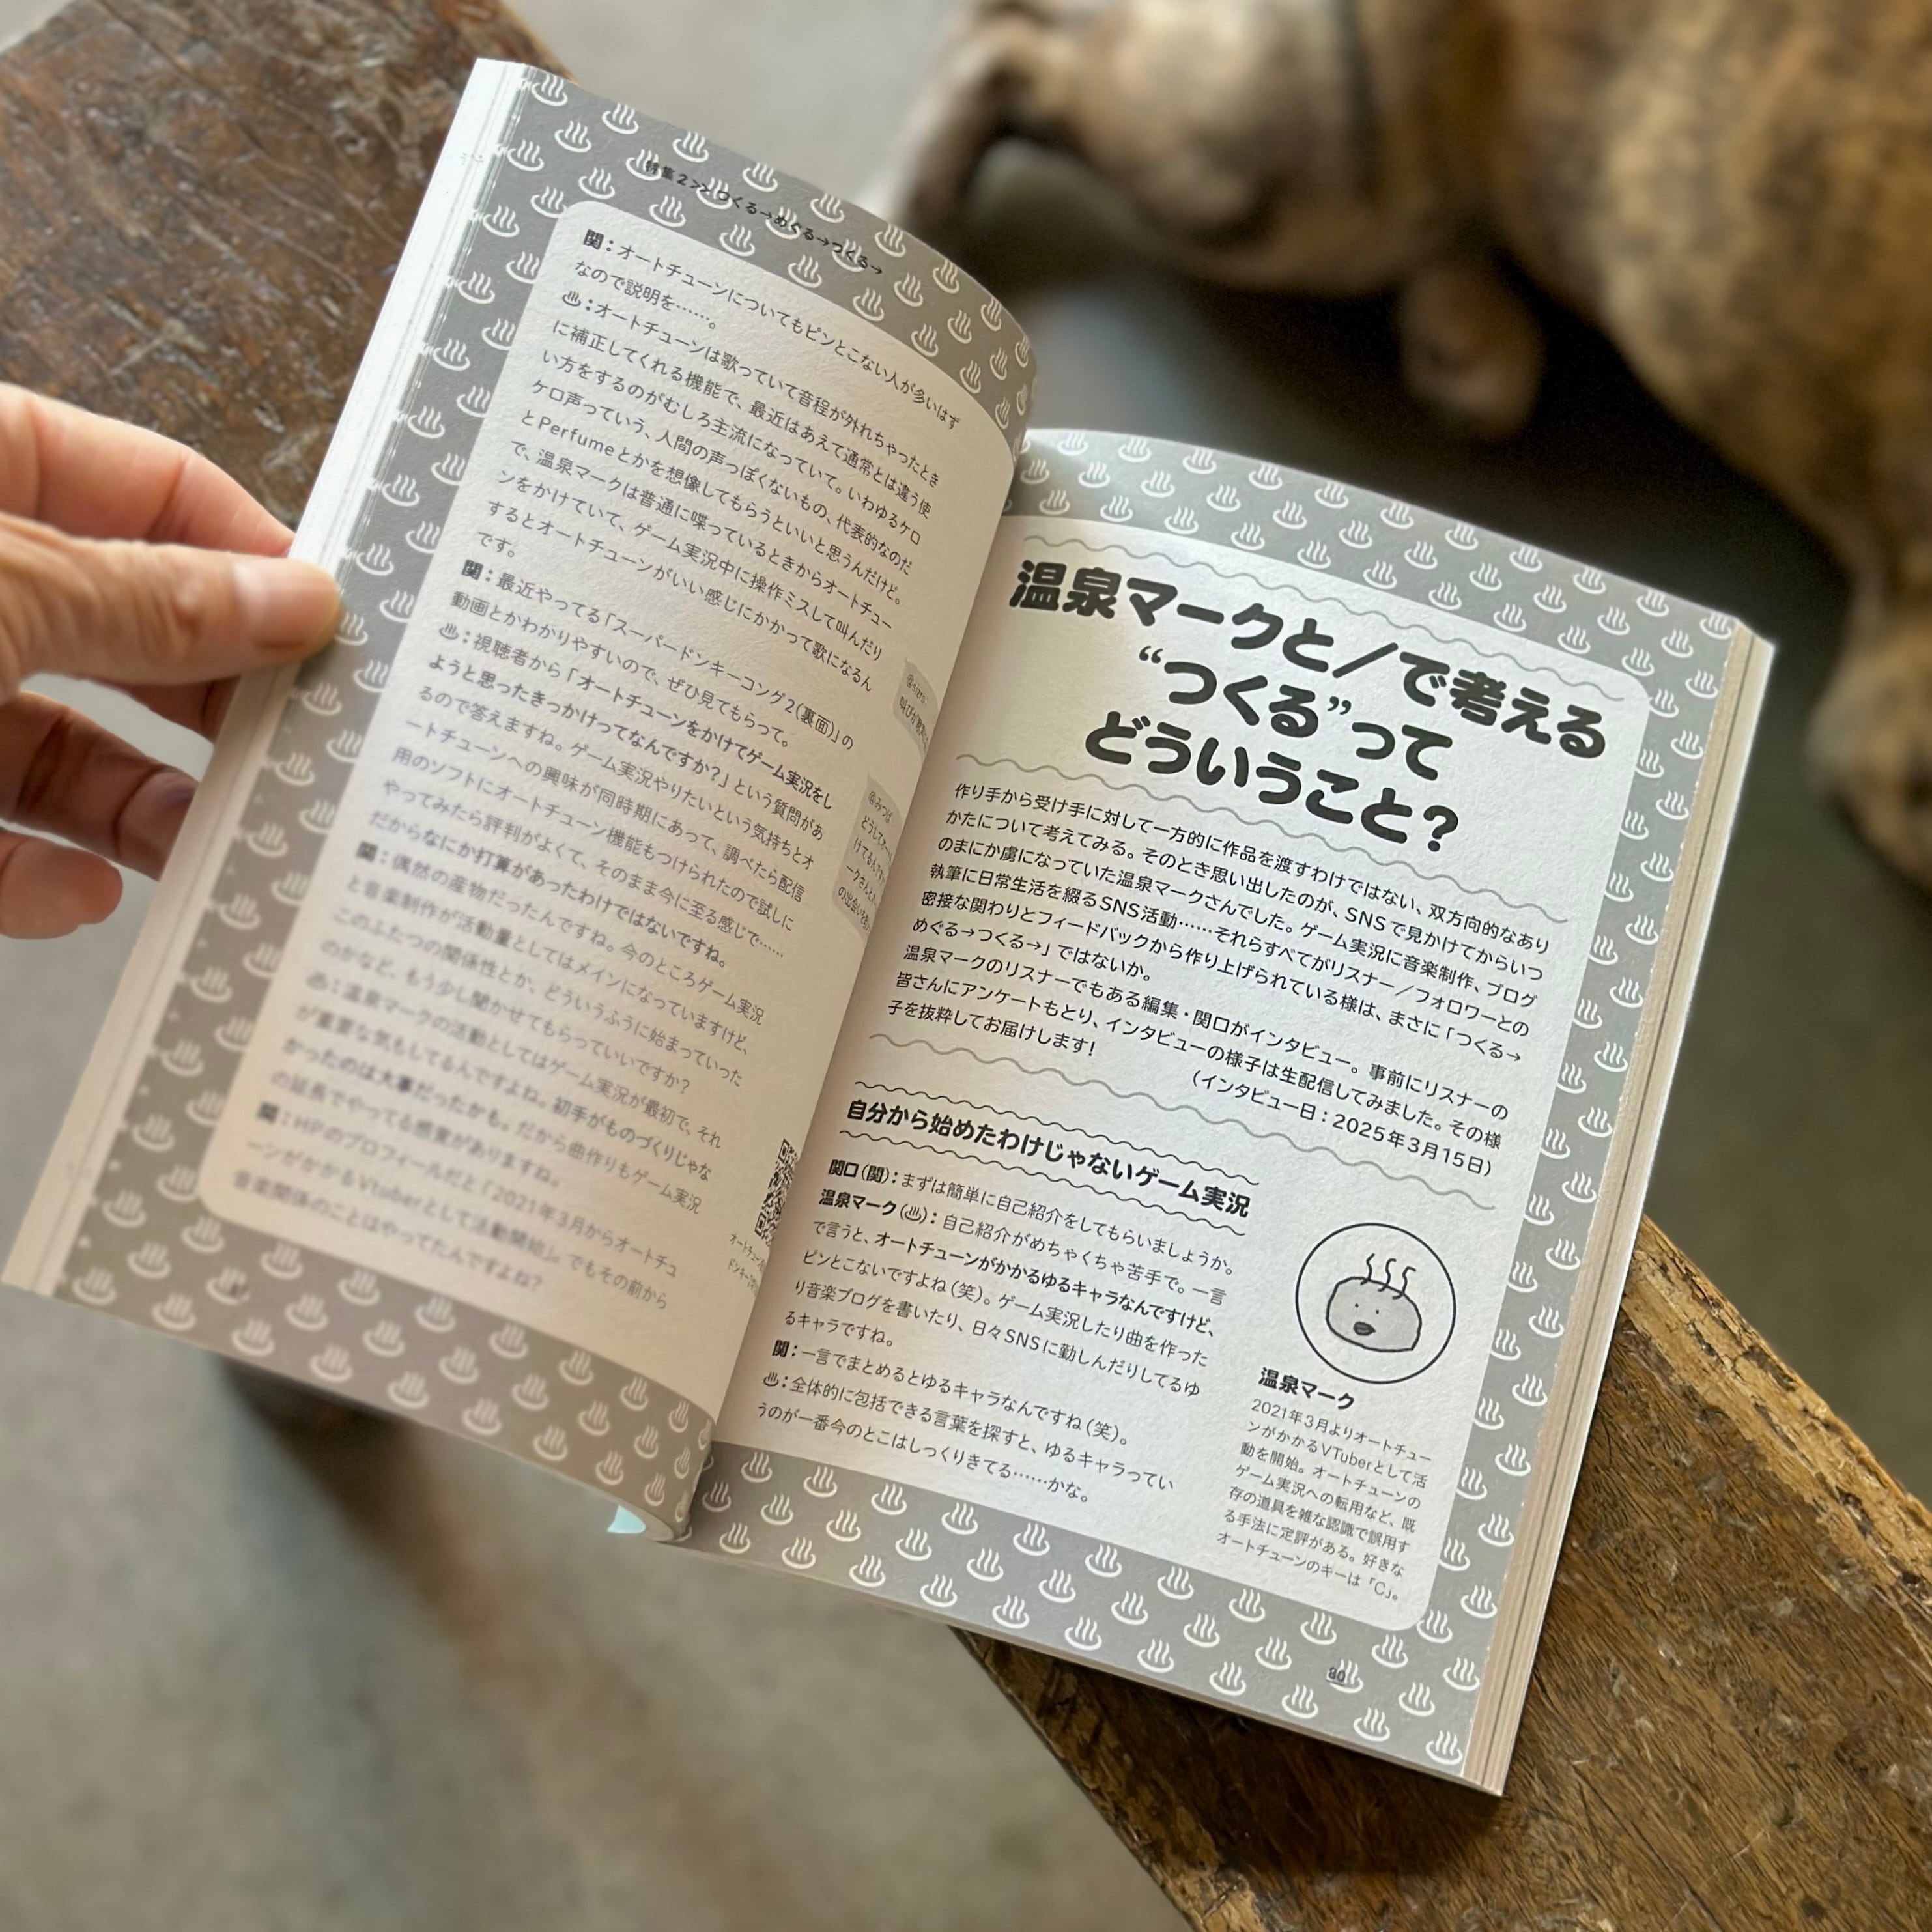 特集2>>つくる→めぐる→つくる→
関：オートチューンについてもピンとこない人が多いはず
なので説明を……。
♨：オートチューンは歌っていて音程が外れちゃったとき
に補正してくれる機能で、最近はあえて通常とは違う使
い方をするのがむしろ主流になっていて。いわゆるケロ
ケロ声っていう、人間の声っぽくないもの、代表的なのだ
とPerfumeとかを想像してもらうといいと思うんだけど。
で、温泉マークは普通に喋っているときからオートチュー
ンをかけていて、ゲーム実況中に操作ミスして叫んだり
するとオートチューンがいい感じにかかって歌になるん
です。
関：最近やってる「スーパードンキーコング2（裏面）」の
動画とかわかりやすいので、ぜひ見てもらって。
♨：視聴者から「オートチューンをかけてゲーム実況をし
ようと思ったきっかけってなんですか？」という質問があ
るので答えますね。ゲーム実況やりたいという気持ちとオ
ートチューンへの興味が同時期にあって、調べたら配信
用のソフトにオートチューン機能もつけられたので試しに
やってみたら評判がよくて、そのまま今に至る感じで……
だからなにか打算があったわけではないですね。
関：偶然の産物だったんですね。今のところゲーム実況
と音楽制作が活動量としてはメインになっていますけど、
このふたつの関係性とか、どういうふうに始まっていった
のかなど、もう少し聞かせてもらっていいですか？
♨：温泉マークの活動としてはゲーム実況が最初で、それ
が重要な気もしてるんですよね。初手がものづくりじゃな
かったのは大事だったかも。だから曲作りもゲーム実況
の延長でやってる感覚がありますね。
関：HPのプロフィールだと「2021年3月からオートチュ
ーンがかかるVtuberとして活動開始」。でもその前から
音楽関係のことはやってたんですよね？
温泉マークと／で考える
“つくる”って
どういうこと？
作り手から受け手に対して一方的に作品を渡すわけではない、双方向的なあり
かたについて考えてみる。そのとき思い出したのが、SNSで見かけてからいつ
のまにか虜になっていた温泉マークさんでした。ゲーム実況に音楽制作、ブログ
執筆に日常生活を綴るSNS活動……それらすべてがリスナー／フォロワーとの
密接な関わりとフィードバックから作り上げられている様は、まさに「つくる→
めぐる→つくる→」ではないか。
温泉マークのリスナーでもある編集・関口がインタビュー。事前にリスナーの
皆さんにアンケートもとり、インタビューの様子は生配信してみました。その様
子を抜粋してお届けします！
（インタビュー日：2025年3月15日）
自分から始めたわけじゃないゲーム実況
関口（関）：まずは簡単に自己紹介をしてもらいましょうか。
温泉マーク（♨）：自己紹介がめちゃくちゃ苦手で。一言
で言うと、オートチューンがかかるゆるキャラなんですけど、
ピンとこないですよね（笑）。ゲーム実況したり曲を作った
り音楽ブログを書いたり、日々SNSに勤しんだりしてるゆ
るキャラですね。
関：一言でまとめるとゆるキャラなんですね（笑）。
♨：全体的に包括できる言葉を探すと、ゆるキャラってい
うのが一番今のとこはしっくりきてる……かな。
温泉マーク
2021年3月よりオートチュー
ンがかかるVTuberとして活
動を開始。オートチューンの
ゲーム実況への転用など、既
存の道具を雑な認識で誤用す
る手法に定評がある。好きな
オートチューンのキーは「C」。
80